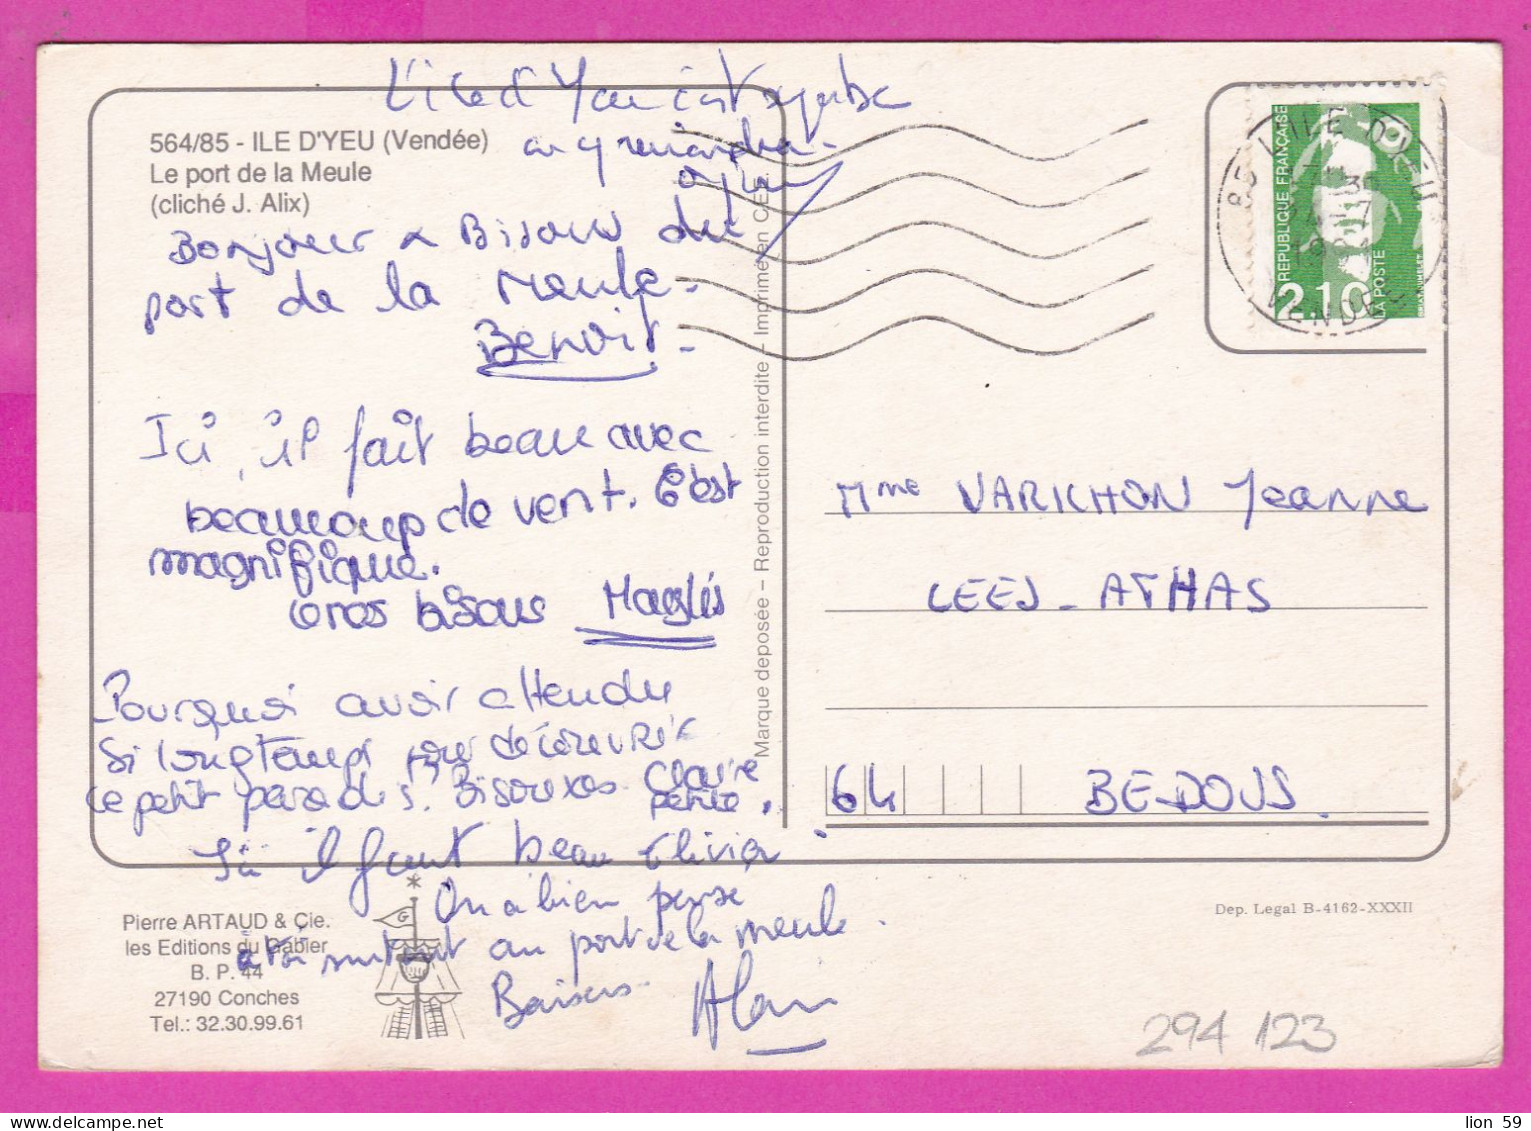 L'île d'Yeu c'est superbe
on y reviendra.
564/85 - ILE D'YEU (Vendée)
Le port de la Meule
(cliché J. Alix)
Bonjour & Bisous du
port de la Meule.
Benoit.
Ici, il fait beau avec
beaucoup de vent. C'est
magnifique.
Gros bisous Magali
Pourquoi avoir attendu
si longtemps pour découvrir
ce petit paradis. Bisouxos Claire
petite.
Ici il faut beau Olivier
On a bien pensé
à toi surtout au port de la meule.
Baisers. Alain
Pierre ARTAUD & Cie.
les Editions du Gabier
B. P. 44
27190 Conches
Tel.: 32.30.99.61
G
Marque deposée – Reproduction interdite – Imprimé en C.E.E.
85 L'ILE D'YEU
VENDEE
REPUBLIQUE FRANÇAISE
2.10
LA POSTE
Mme VARICHON Jeanne
LEES - ATHAS
64 BEDOUS.
Dep. Legal B-4162-XXXII
294 123
lion 59